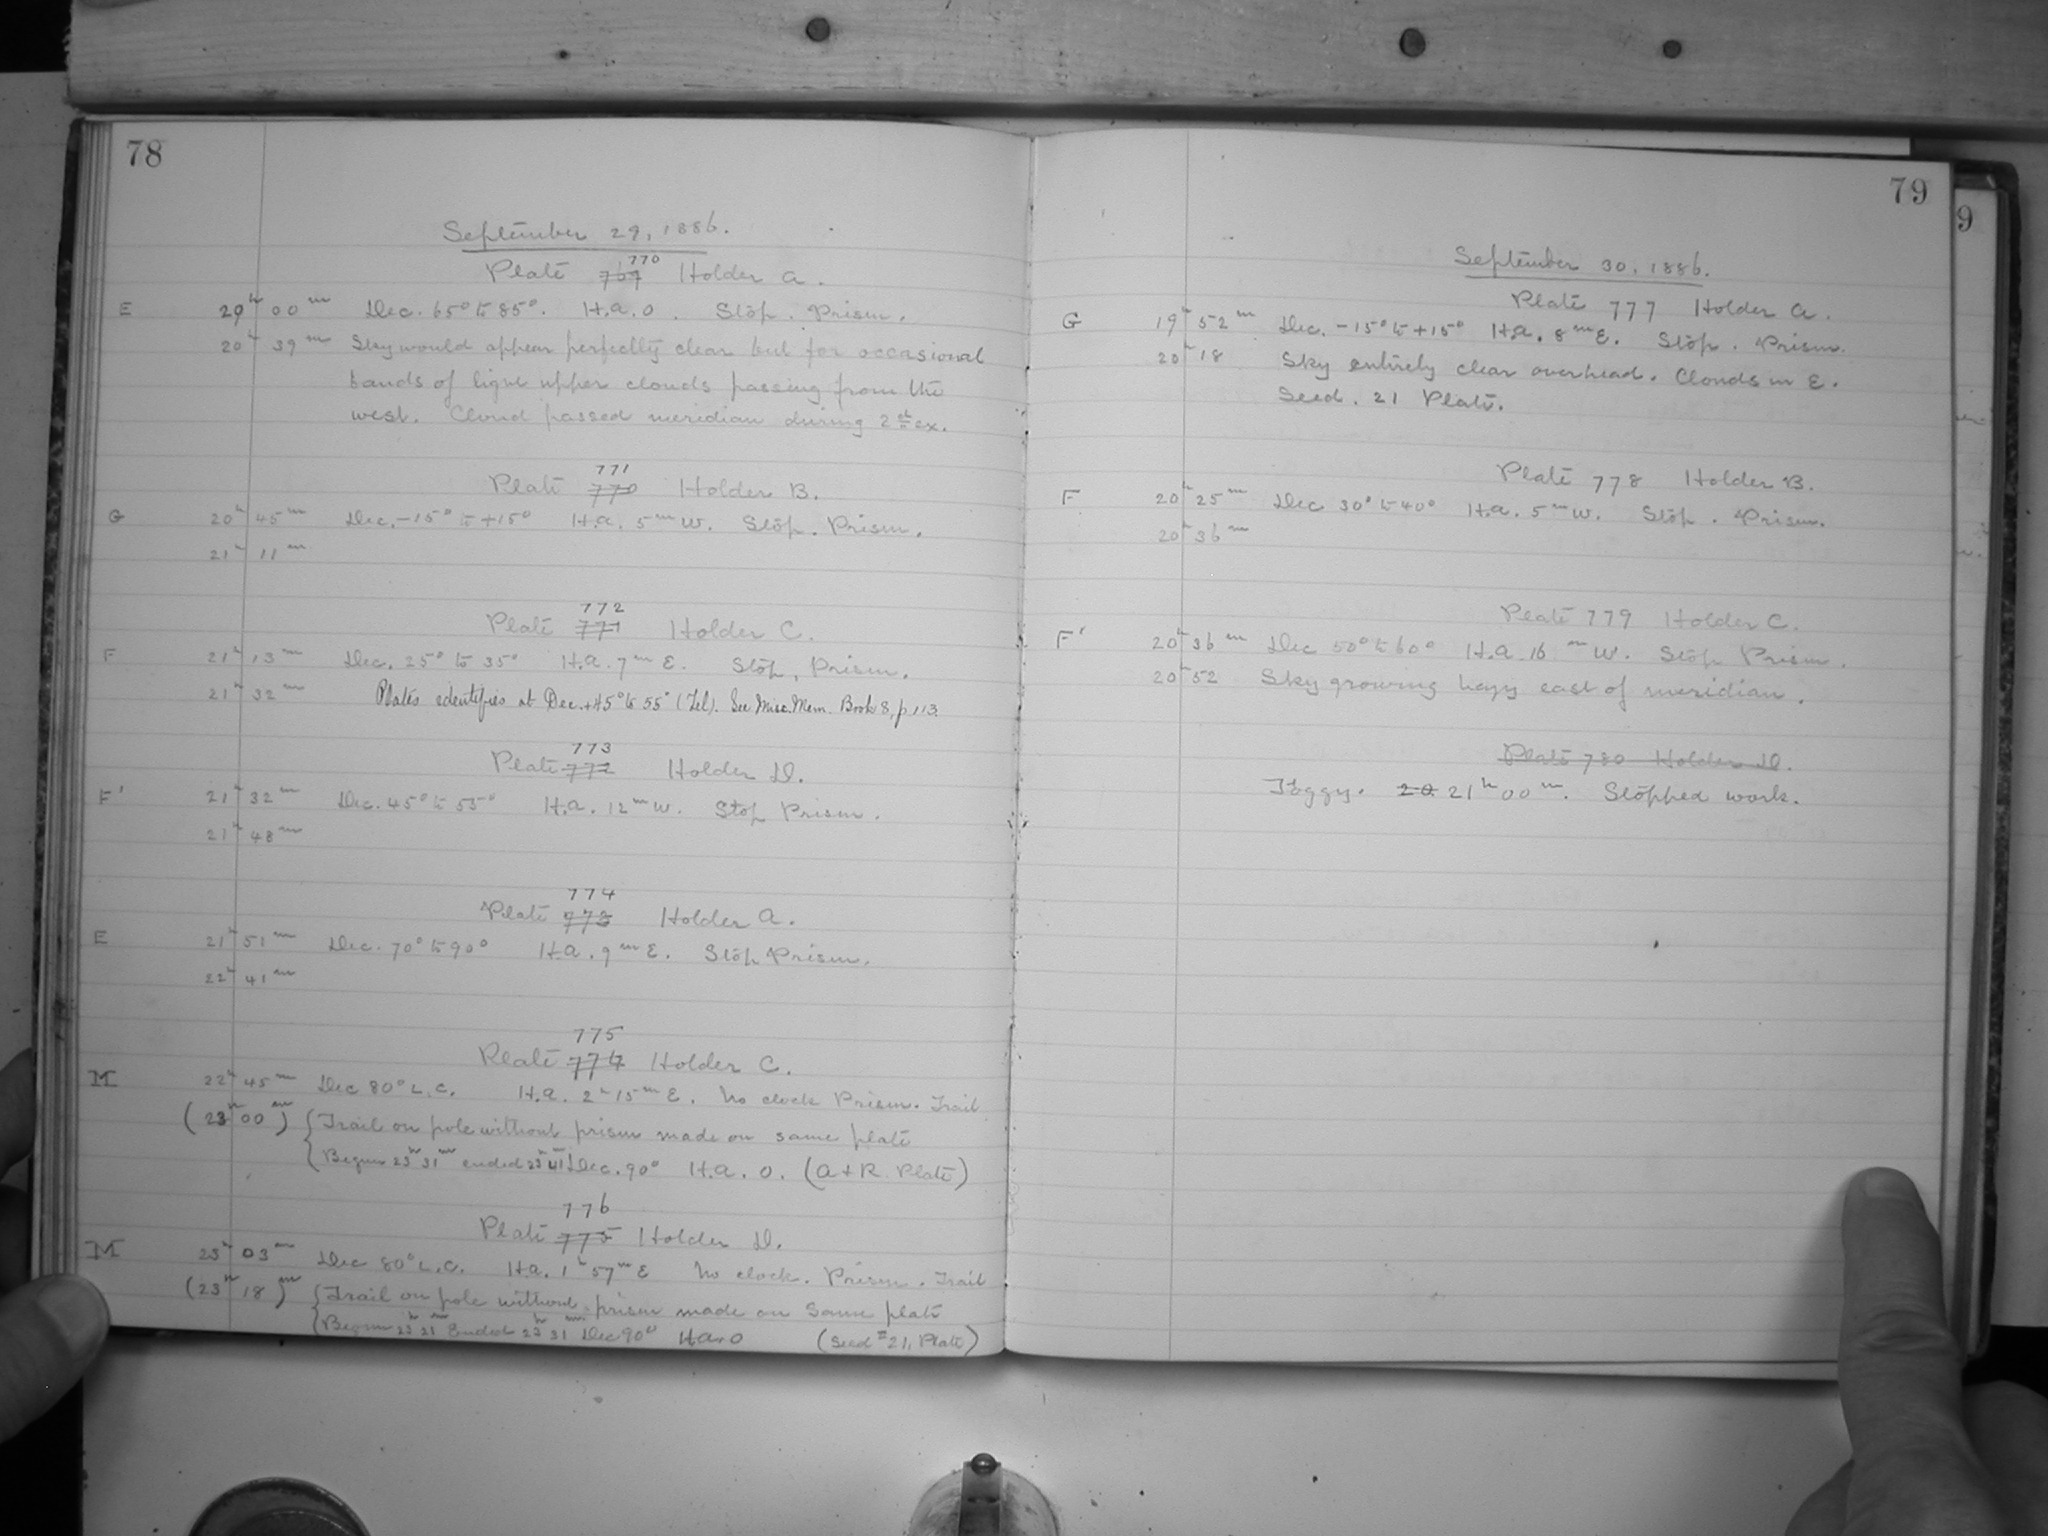 78
September 29, 1886.
770
Plate 769 Holder A.
E 20h 00m Dec. 65° to 85°. H.A. 0. Stop. Prism.
20h 39m Sky would appear perfectly clear but for occasional
bands of light upper clouds passing from the
west. Cloud passed meridian during 2d ex.
771
Plate 770 Holder B.
G 20h 45m Dec. -15° to +15° H.A. 5m W. Stop. Prism.
21h 11m
772
Plate 771 Holder C.
F 21h 13m Dec. 25° to 35° H.A. 7m E. Stop, Prism.
21h 32m Plates identifies at Dec. +45° to 55° (Tel). See Misc. Mem. Book 8, p 113.
773
Plate 772 Holder D.
F' 21h 32m Dec. 45° to 55° H.A. 12m W. Stop Prism.
21h 48m
774
Plate 773 Holder A.
E 21h 51m Dec. 70° to 90° H.A. 9m E. Stop Prism.
22h 41m
775
Plate 774 Holder C.
M 22h 45m Dec 80° L.C. H.A. 2h 15m E. No clock Prism. Trail
(23h 00m) {Trail on pole without prism made on same plate
Begun 23h 31m ended 23h 41m Dec. 90° H.A. 0. (A+R Plate)
776
Plate 775 Holder D.
M 23h 03m Dec 80° L.C. H.A. 1h 57m E No clock. Prism. Trail
(23h 18m) {Trail on pole without prism made on same plate
Begun 23h 21m Ended 23h 31m Dec 90° H.A. 0 (Seed #21, Plate)
79
9
September 30, 1886.
Plate 777 Holder A.
G 19h 52m Dec. -15° to +15° H.A. 8m E. Stop. Prism.
20h 18 Sky entirely clear overhead. Clouds in E.
Seed. 21 Plate.
Plate 778 Holder B.
F 20h 25m Dec 30° to 40° H.A. 5m W. Stop. Prism.
20h 36m
Plate 779 Holder C.
F' 20h 36m Dec 50° to 60° H.A. 16m W. Stop Prism.
20h 52 Sky growing hazy east of meridian.
Plate 780 Holder D.
Foggy. 20 21h 00m. Stopped work.